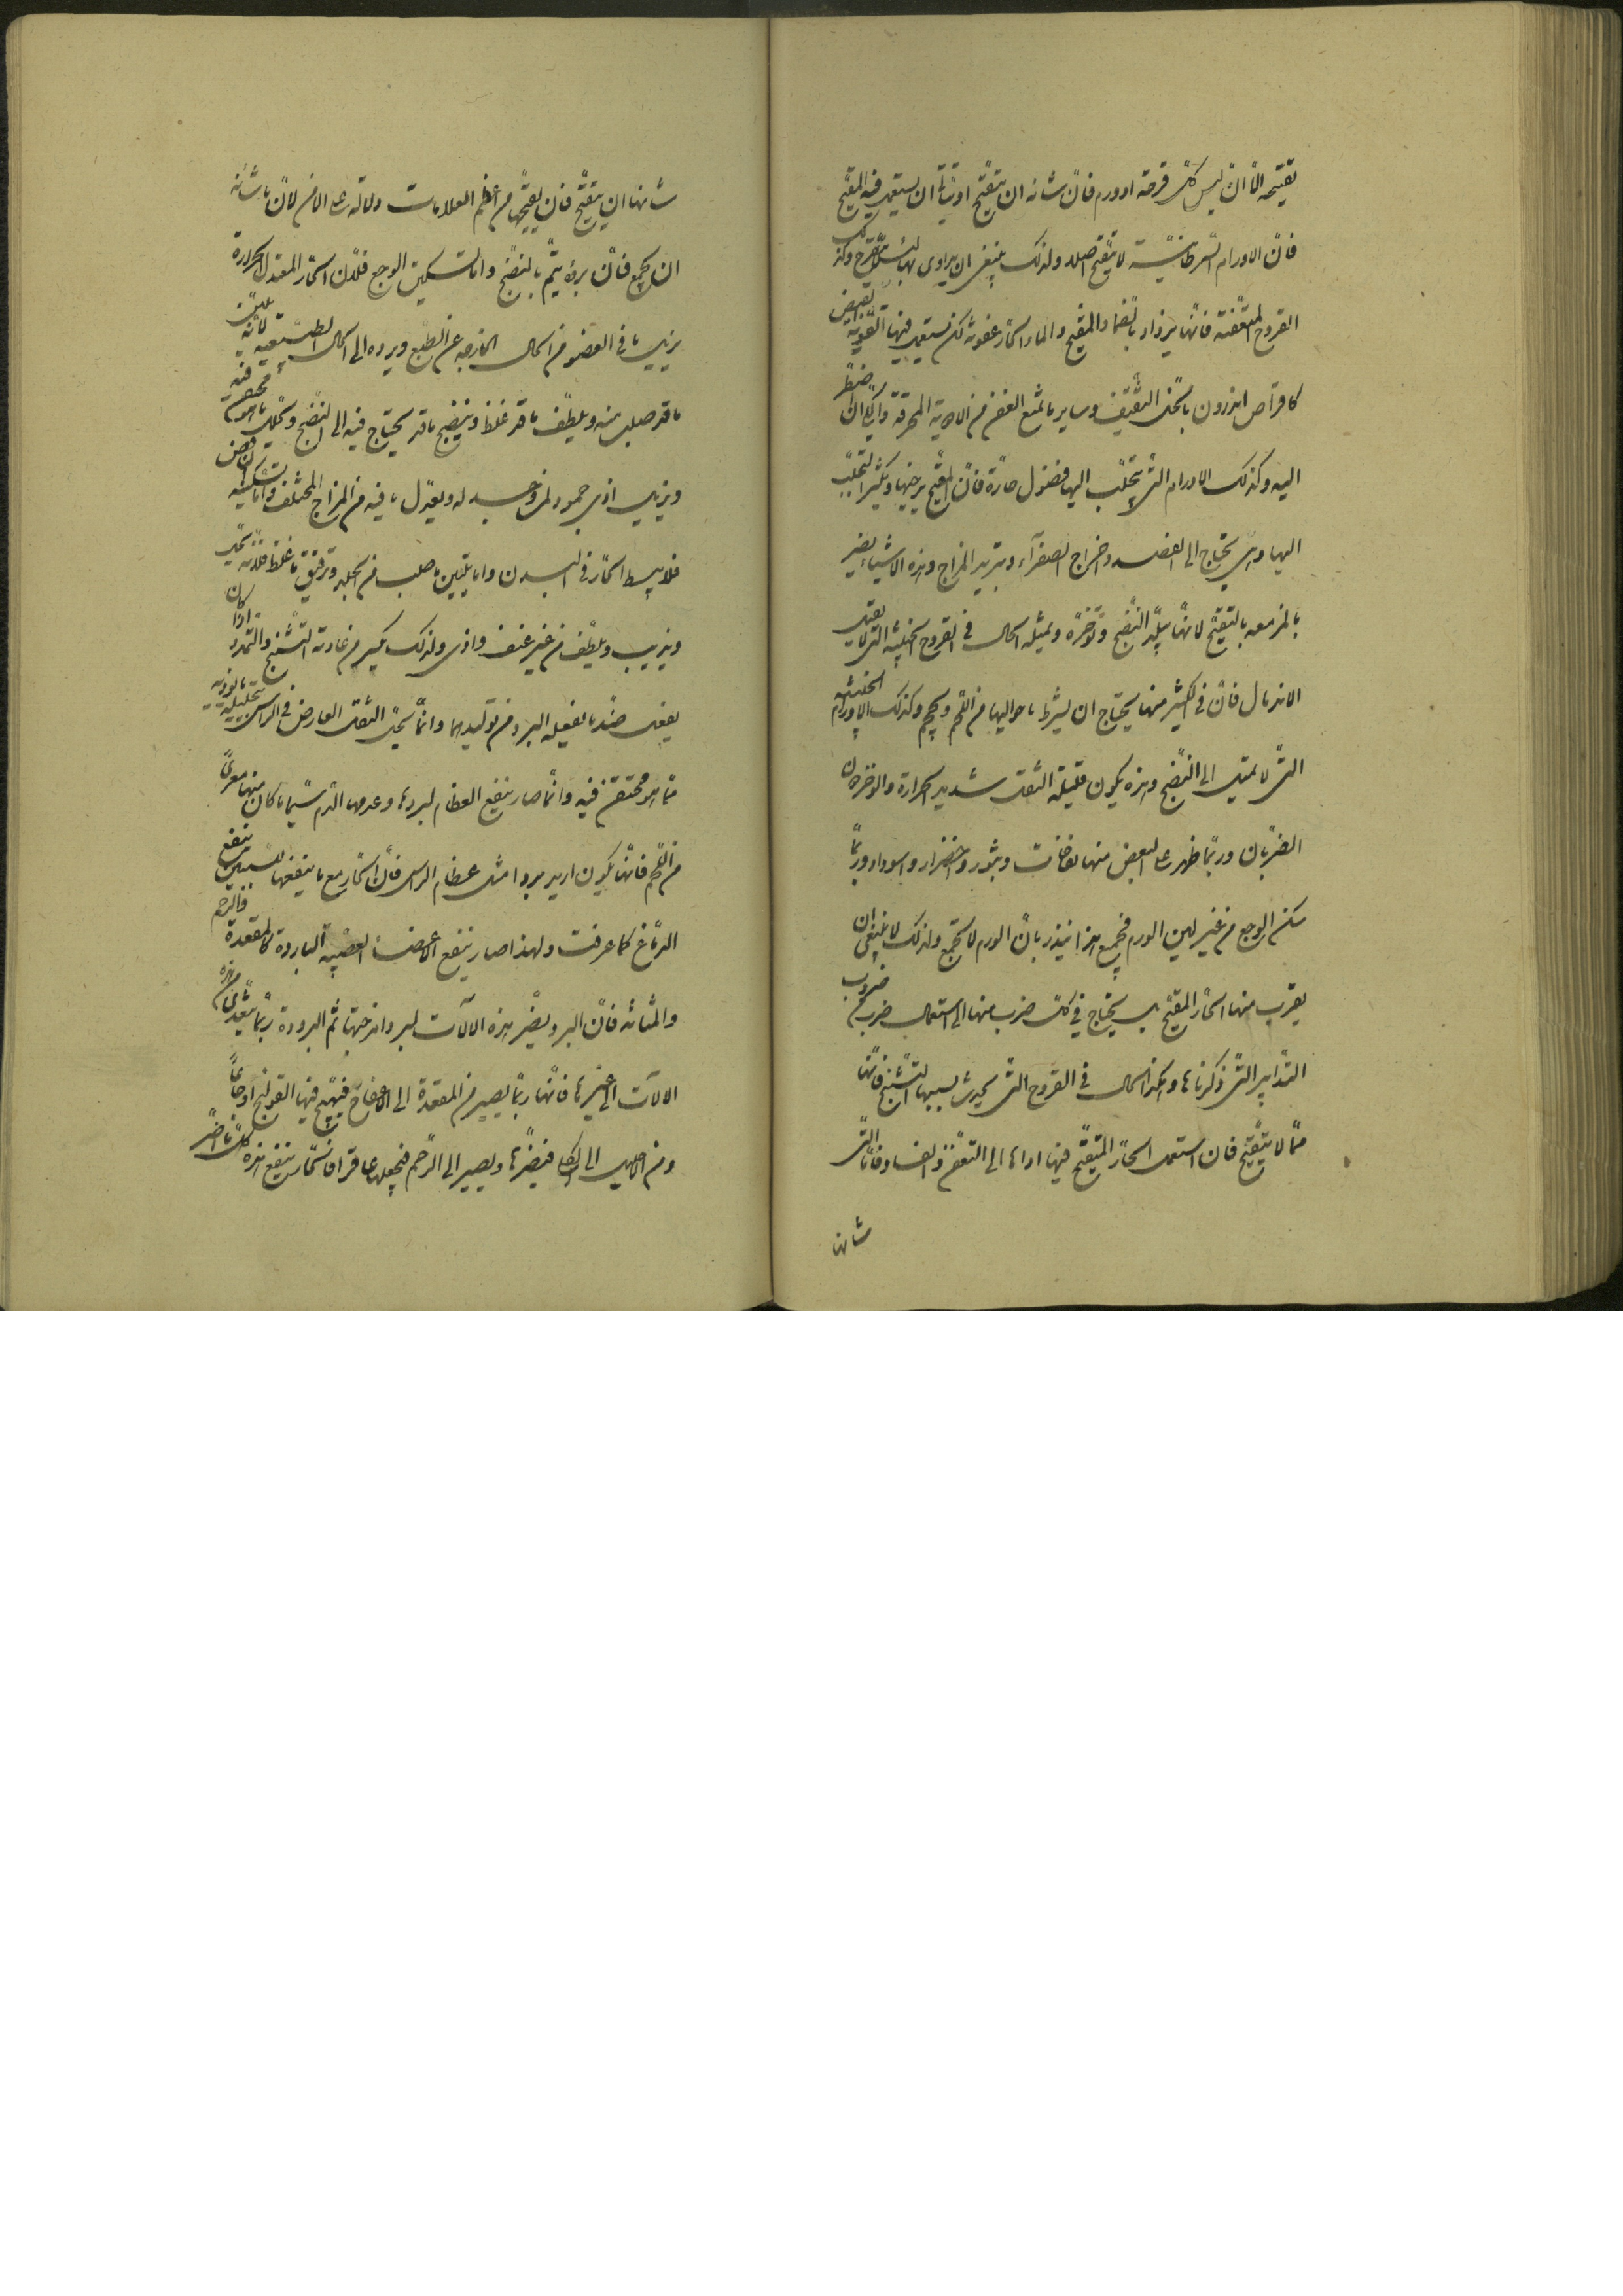 تقيحه الا ان ليس كل قرحة او ورم فان شانه ان يتقيح ان يستعمل فيه المقيح
فان الاورام السرطانية لا تتقيح اصلا ولذلك ينبغى ان يداوى بها لئلا يتقرح وكذلك
القروح المتعفنة فانها يزداد بالضماد المقيح والماء الحار عفونة لكن يستعمل فيها القوية
كاقراص اندرون وساير ما يمنع العفن من الادوية المحرقة
اليه وكذلك الاورام التى يتحلب اليها فضول حارة فان المقيح يرخيها ويكثر التحلب
اليها وهى يحتاج الى الفصد واخراج الصفرآء وتبريد المزاج وهذه الاشياء يضر
بالمزمعه بالتقيح لانها تبلد النضج وتوخره ومثله الحال فى القروح الخبيثه التى لا يقبل
الاندمال فان فى الكثير منها يحتاج ان يشرط ما حواليها من اللحم ويحجم وكذلك الاورام الخبيثه
التى لا تميل الى النضج وهذه يكون قليلة الثقل شديد الحرارة
الضربان وربما ظهر على البعض منها نفاخات وبثور واخضرار واسوداد وربما
سكن الوجع من غير لين الورم فجميع هذا ينذر بان الورم لا يجتمع ولذلك لا ينبغى ان
يقرب منها الحار المقيح بل يحتاج فى كل ضرب منها الى استعمال ضرب من ضروب
التدابير التى ذكرناها وهكذا الحال فى القروح التى يحدث بسببها التشنج فانها
مما لا يتقيح فان استعمل الحار المقيح فيها اداها الى التعفن والفساد فاما التى
شانها
شانها ان يتقيح فان تقيحها من اعظم العلامات دلالة على الامن لان ما شانه
ان يجمع فان برؤه يتم بالنضج واما تسكين الوجع فلان الحار المعتدل الحرارة
يزيل ما فى العضو من الحال الخارجه عن الطبع ويرده الى الحال الطبيعيه لانه يلين
ما قد صلب منه ويلطف ما قد غلظ وينضج ما قد يحتاج فيه الى النضج ويحلل ما هو محتقن فيه
ويزيل اذى جمود ويعدل ما فيه من المزاج المختلف واما تسكينه
فلانه يبسط الحار فى البدن واما تليين ما صلب من الجلد وترقيق ما غلظ فلانه يحلل
ويذيب ويلطف من غير عنف واذى ولذلك يكسر من عادية التشنج والتمدد اذا كان
يفعل ضد ما يفعله البرد من توليدهما وانما يحل الثقل العارض فى الراس بتحليله ما يوذيه
مما هو محتقن فيه وانما صار ينفع العظام لبردها وعدمها الدم سيما ما كان منها معرى
من اللحم فانها يكون ازيد بردا مثل عظام الراس فان الحار مع ما ينفعها
الدماغ كما عرفت ولهذا صار ينفع الاعضاء العصبيه الباردة كالمقعدة والرحم
والمثانة فان البرد يضر هذه الآلات لبرد امزجتها ثم البرودة ربما تتعدى من هذه
الآلات الى غيرها فانها ربما يصير من المقعدة الى الامعاء فيهيج فيها القولنج
ومن الى الكلى فيضرها ويصير الى الرحم فيجعلها عاقرا فالحار ينفع هذه كلها